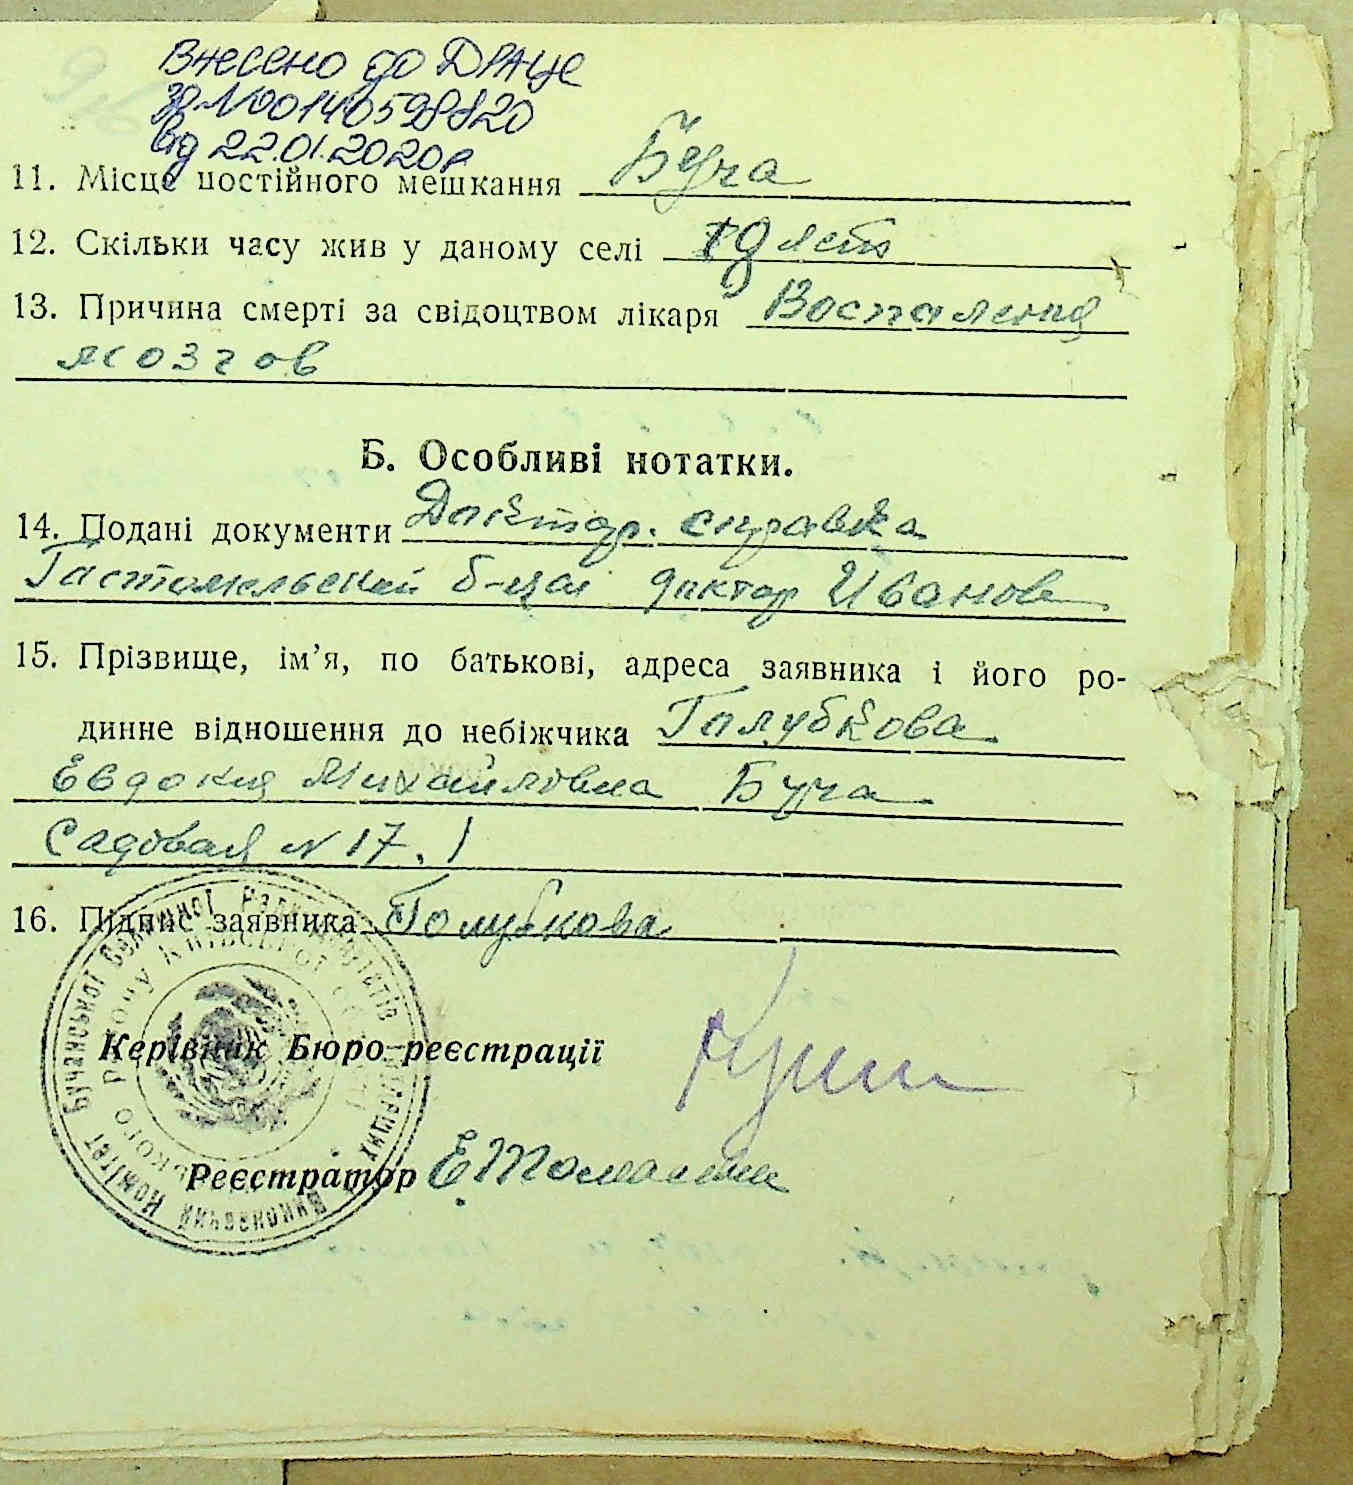 Внесено до ДРАЦС
за №00140598820
від 22.01.2020р
11. Місце постійного мешкання Буча
12. Скільки часу жив у даному селі 19 лет
13. Причина смерті за свідоцтвом лікаря Воспаления
мозгов
Б. Особливі нотатки.
14. Подані документи Доктор. справка
Гостомельской б-цы доктор Иванов
15. Прізвище, ім'я, по батькові, адреса заявника і його ро-
динне відношення до небіжчика Голубкова
Евдокия Михайловна Буча
Садовая N 17.
16. Підпис заявника Голубкова
Керівник Бюро реєстрації
Реєстратор
Виконавчий Комітет Бучанської Селищної Ради Депутатів Трудящих
району Київської області